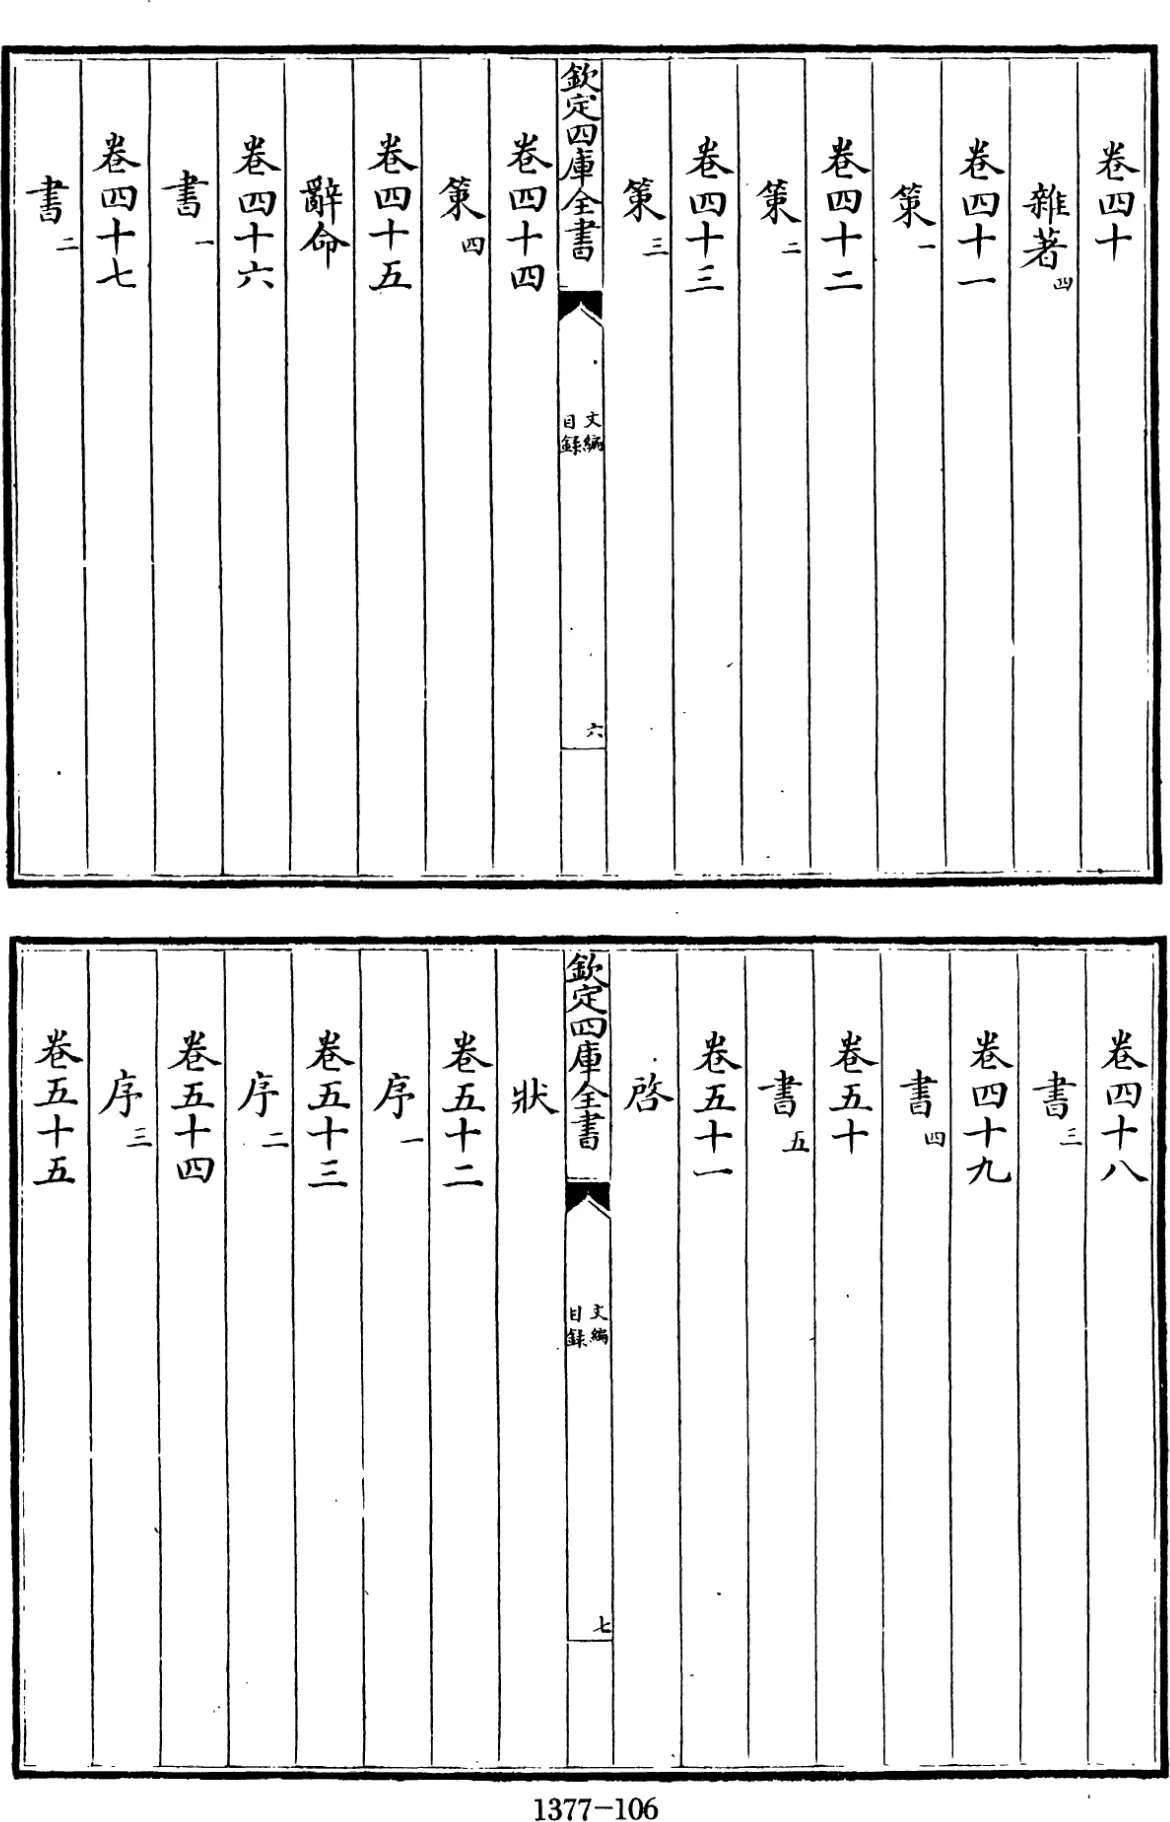 卷四十
雜著四
卷四十一
策一
卷四十二
策二
卷四十三
策三
欽定四庫全書
文編
目錄
六
卷四十四
策四
卷四十五
辭命
卷四十六
書一
卷四十七
書二
卷四十八
書三
卷四十九
書四
卷五十
書五
卷五十一
啓
欽定四庫全書
文編
目錄
七
狀
卷五十二
序一
卷五十三
序二
卷五十四
序三
卷五十五
1377-106